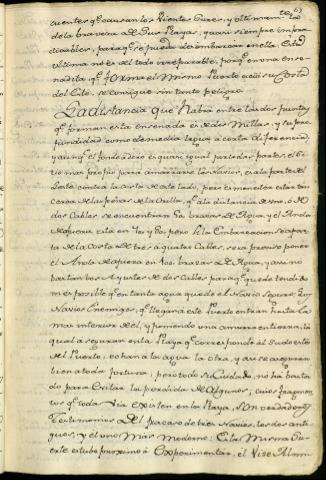 cuentes qe causan los Vientes Sures, y ultimamte
de la braveza de sus Playas, quasi siempre impra
dicables, paraqe se pueda desembarcar en ella. Esta
ultima no es del todo irreparable, porqe en una ense
nadita qe forma el Mismo Puerto al
del se consigue sin tanto peligro.
La distancia que habra entre las dos puntas
qe forman esta ensenada es de dos Millas, y su pro
fundidad como de media legua à corta diferencia,
y aunqe el fondeadero es quasi igual por todas partes, el si
tio mas propio para amarrarse los Navios, es a la parte del
Leste contra la costa de este lado, pero es menester estar tan
cerca de las peñas de la Orilla, qe a la distancia de uno, ó
dos Cables se encuentran 50 brazas de Agua, y el Ancla
de afuera esta en 70 y 80, pero si la Embarcacion se apar
ta de la Costa de tres à quatro Cables, sera preciso poner
el Ancla de afuera en 100 brazas de Agua, y aun no
bastan dos Ayustes de dos Cables paraqe quede tendido
mas posible qe en tanta agua quede el Navio seguro: Los
Navios Enemigos, qe llegan à este Puerto entran hasta lo
mas interior del, y poniendo una amarra en tierra, la
qual aseguran en la Playa qe corresponde al Sudoeste
del Puerto, echan à la agua la otra, y asi se aseguran
bien à toda fortuna, pero todo su Cuidado, no ha basta
do para evitar la perdida de Algunos, cuios fragmen
tos qe toda via existen en la Playa, son verdaderos
Testimonios del fracaso de tres Navios, los dos anti
guos, y el uno mas moderno: Esta Misma Su
erte estubo proximo à Experimentar, el Vice Almi